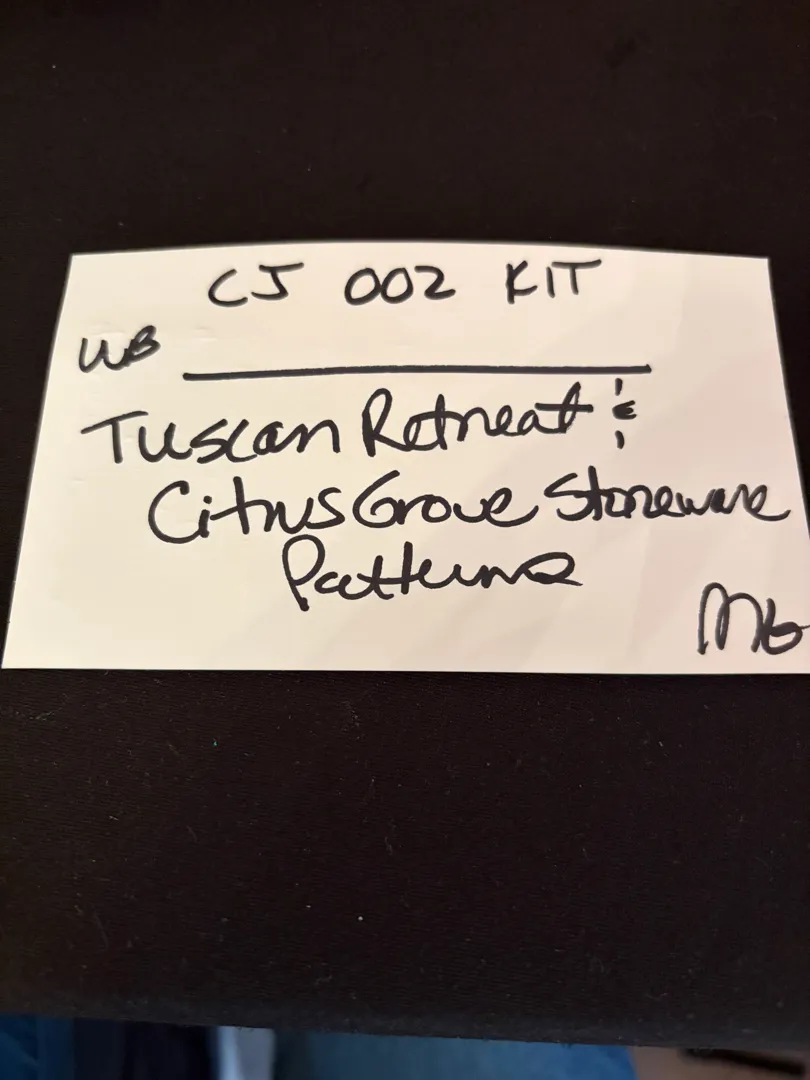 CJ 002 KIT
WB
Tuscan Retreat &
Citrus Grove Stoneware
Patterns
MG